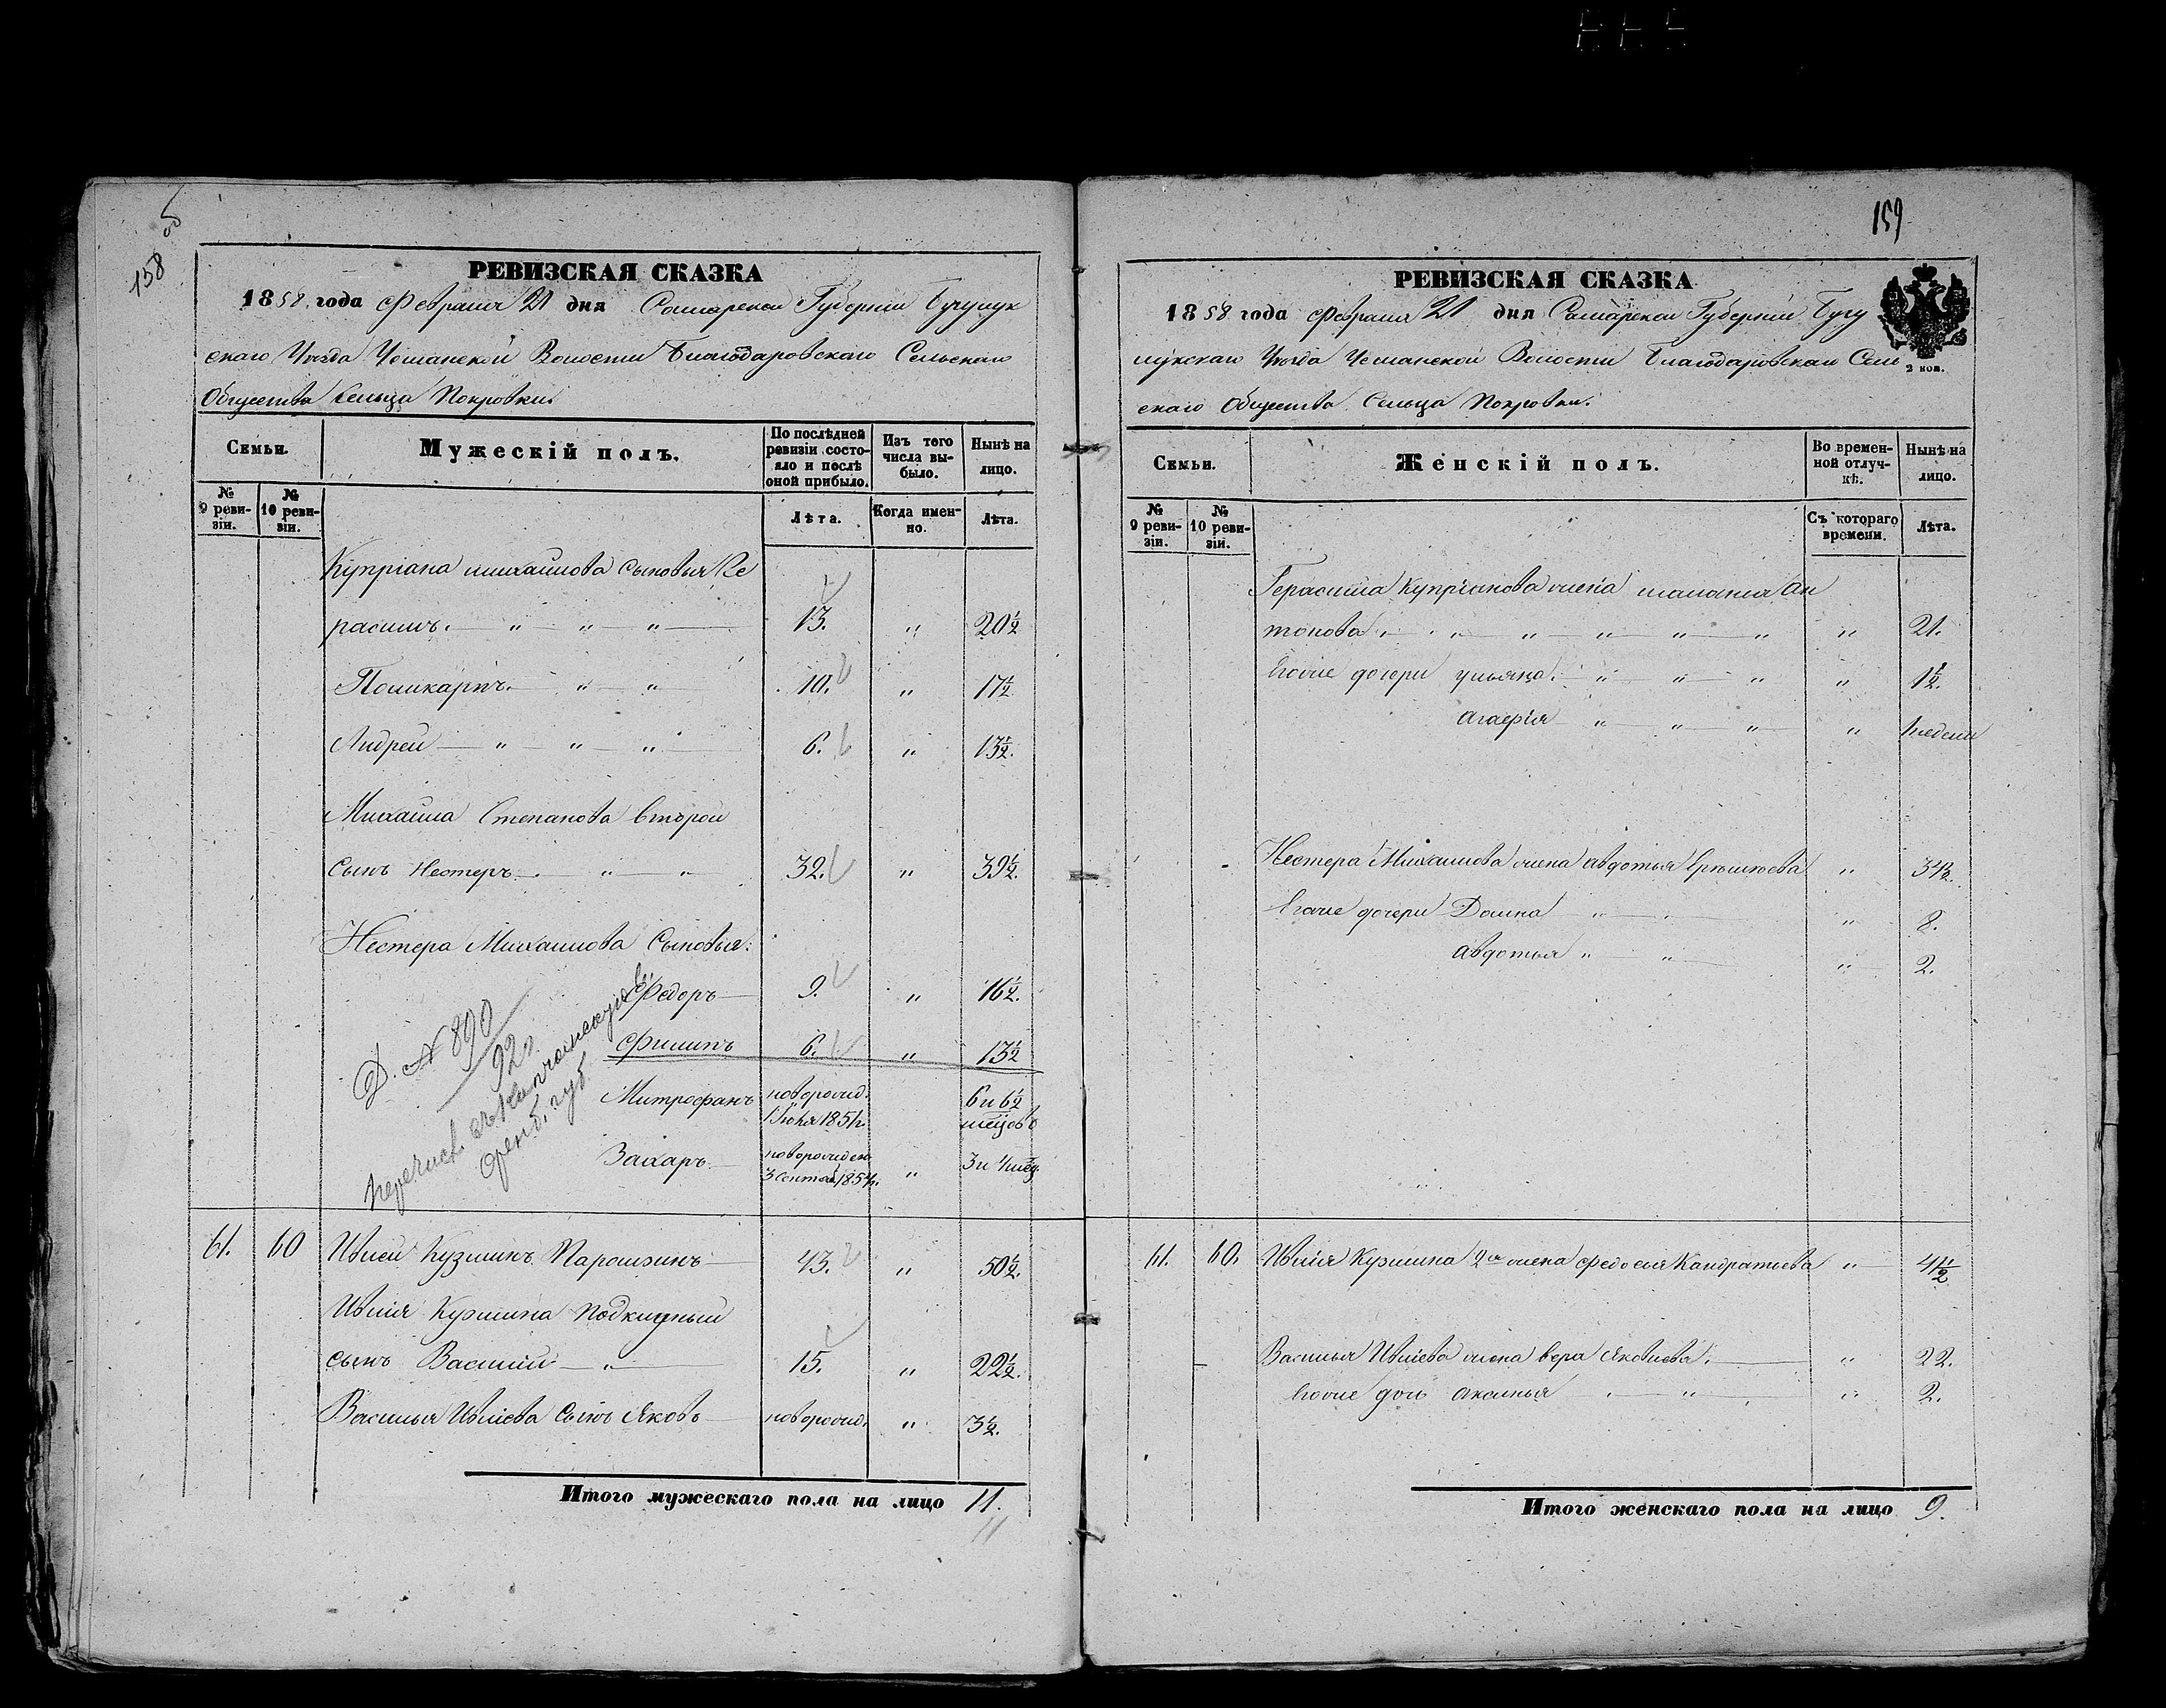 158 об
РЕВИЗСКАЯ СКАЗКА
1858 года Февраля 21 дня Самарской Губернии Бугульмин
скаго Уѣзда Чеманской Волости Благодаровскаго Сельскаго
Общества Сельца Покровки.
Семьи.
Мужескій полъ.
По послѣдней ревизіи состояло и послѣ оной прибыло.
Изъ того числа выбыло.
Нынѣ на лицо.
№ 9 ревизіи.
№ 10 ревизіи.
Лѣта.
Когда именно.
Лѣта.
Купріана Михайлова сыновья Ге
расимъ. 13. " 20½
Поликарпъ. 10. " 17½
Андрей 6. " 13½.
Михайла Степанова второй
сынъ Нестеръ. 32. " 39½.
Нестера Михайлова Сыновья:
Федоръ 9. " 16½.
Филипъ 6. " 13½
Митрофанъ новорожд. 1851г. 6 и 6½ мѣсцовъ
Захаръ новорожден 3 Сентяб 1854г. " 3 и 4 мѣс.
Д. № 890
92
перечисл. въ
Оренб. губ.
61. 60 Ивлей Кузминъ Парамзинъ 43. " 50½.
Ивлія Кузмина подкидный
сынъ Василий 15. " 22½.
Василья Ивліева сынъ Яковъ новорожд. " 3½.
Итого мужескаго пола на лицо 11.
11
159
РЕВИЗСКАЯ СКАЗКА
1858 года Февраля 21 дня Самарской Губерніи Бугу
скаго Уѣзда Чеманской Волости Благодаровскаго Сель
скаго Общества Сельца Покровки.
2 коп.
Семьи.
Женскій полъ.
Во временной отлучкѣ.
Нынѣ на лицо.
№ 9 ревизіи.
№ 10 ревизіи.
Съ котораго времени.
Лѣта.
Герасима Купріянова жена Маланья Ан
тонова " 21.
Егоже дочери Ульяна. " 1½.
Агафія " недели
Нестера Михайлова жена Авдотья " 34½.
Егоже дочери Домна " 8.
Авдотья " 2.
61. 60. Ивлія Кузмина 2я жена Федосья Кандратьева " 41½
Василья Ивліева жена Вера Яковлева. " 22.
Егоже дочь Аксинья " 2.
Итого женскаго пола на лицо 9.